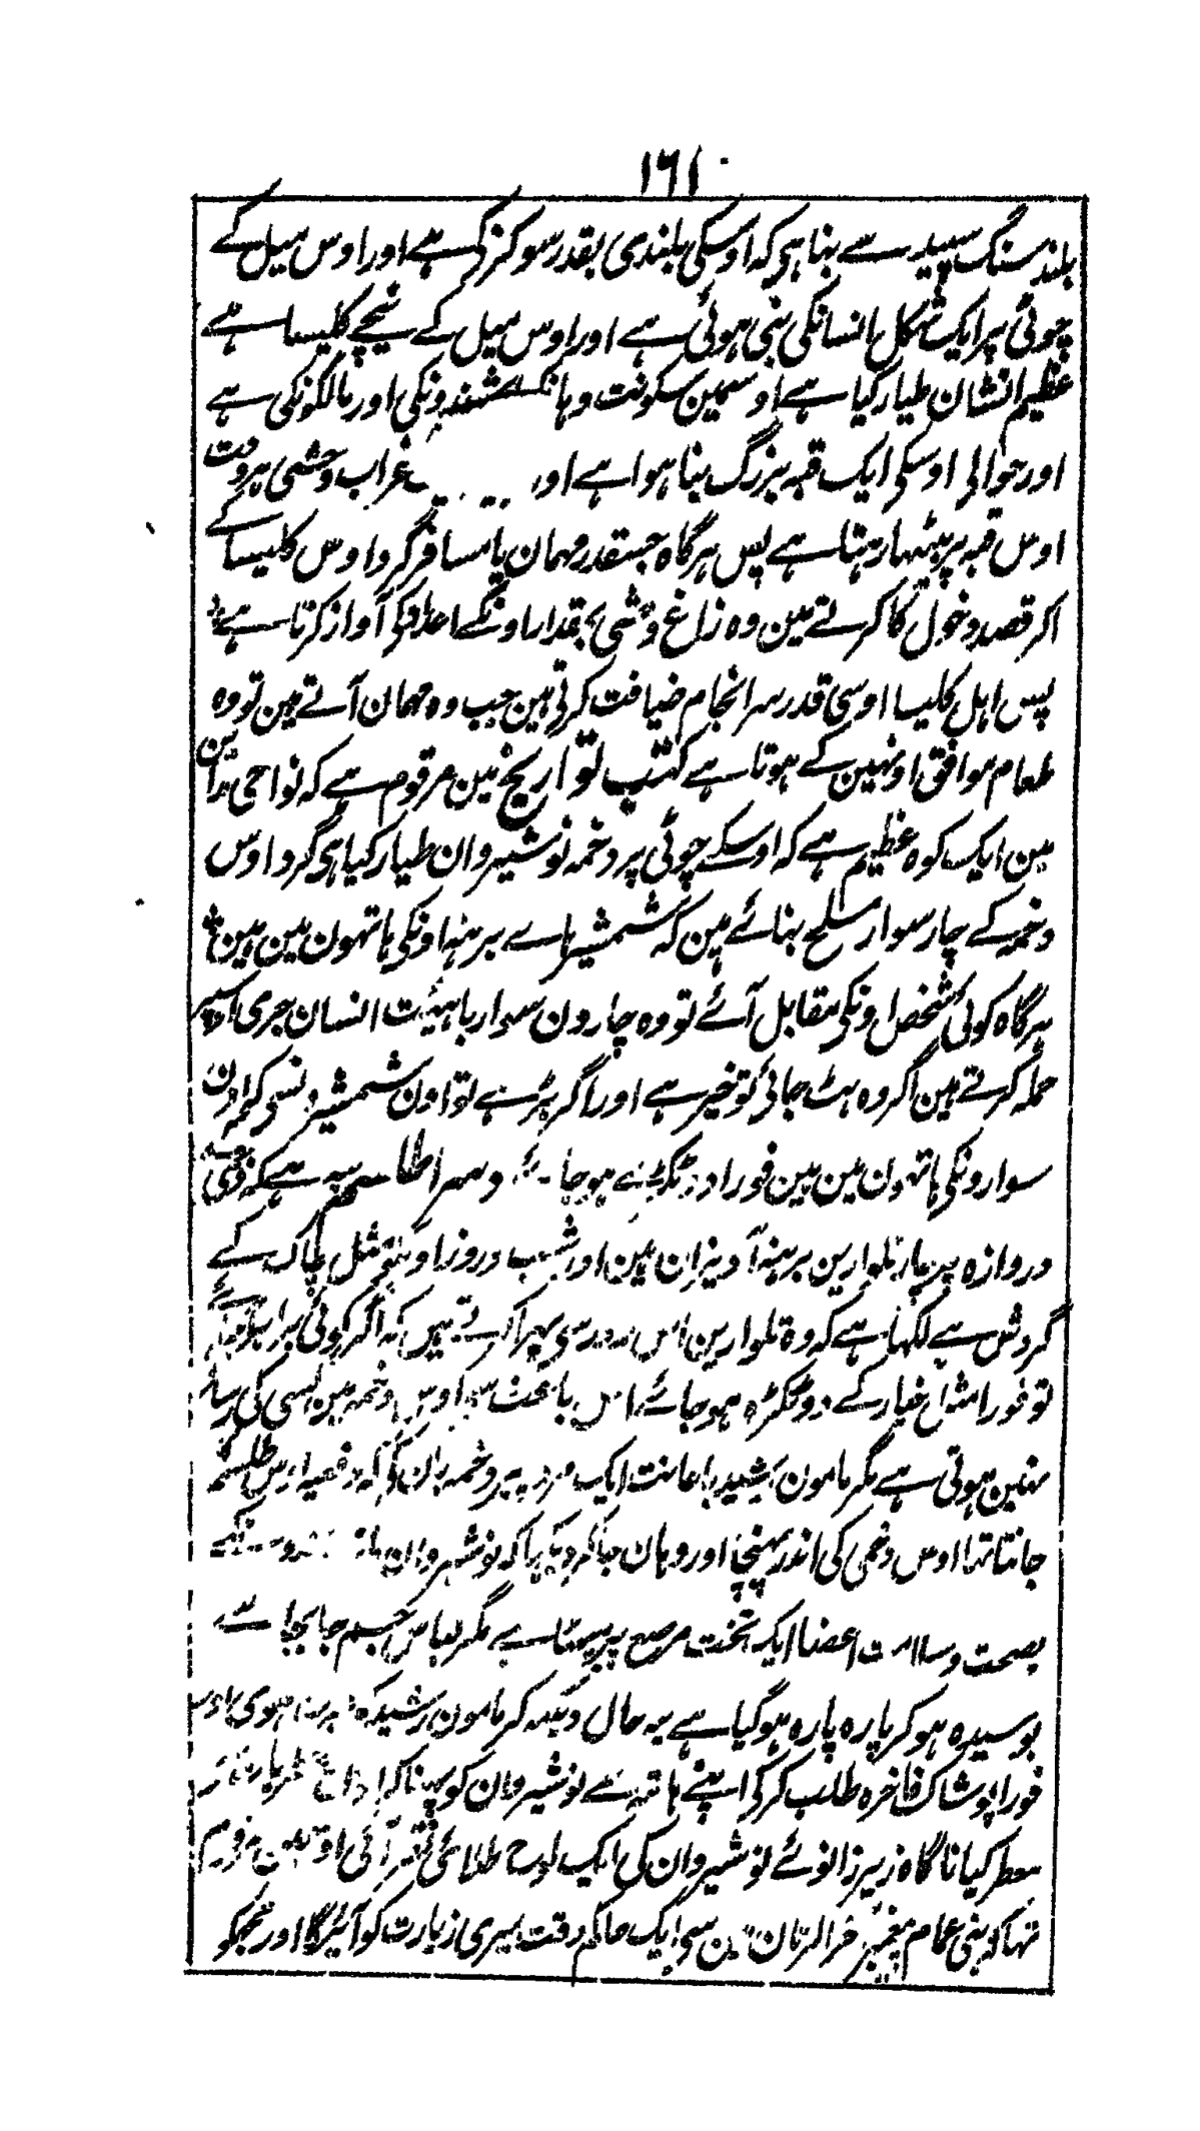 ۱۶۱
بلند سنگ سپید سے بنا ہی کہ اوسکی بلندی بقدر سو گز کی ہے اور اوس میل کے
چوٹی پر ایک شکل انسانکی بنی ہوئی ہے اور اوس میل کے نیچے کلیسا ہے
عظیم الشان طیار کیا ہے اوسمین سکونت وہانکے اور مالکونکی ہے
اور حوالی اوسکی ایک قبہ بزرگ بنا ہوا ہے اور غراب وحشی ہر وقت
اوس قبہ پر بیٹھا رہتا ہے پس ہرگاہ جسقدر مہمان یا مسافر گرد اوس کلیسا کے
اکر قصد دخول کا کرتے مین وہ زاغ وحشی بمقدار اونکے اعداد کو آواز کرتا ہے
پس اہل کلیسا اوسی قدر سرانجام ضیافت کرتی ہین جب وہ مہمان آتے ہین تو وہ
طعام موافق اونہین کے ہوتا ہے کتب تواریخ مین مرقوم ہے کہ نواحی مداین
مین ایک کوہ عظیم ہے کہ اوسکے چوٹی پر دخمہ نوشیروان طیار کیا ہی گرد اوس
دخمہ کے چار سوار مسلح بنائے ہین کہ شمشیر ہاے برہنہ اونکی ہاتہون مین ہین
ہرگاہ کوئی شخص اونکی مقابل آئے تو وہ چارون سوار باہیئت انسان جری
حملہ کرتے ہین اگر وہ ہٹ جائی تو خیر ہے اور اگر بڑہے تو اون شمشیرونسی کہ اون
سوارونکی ہاتہون مین ہین فورا دو ٹکڑے ہو جائے دوسرا طلسم یہ ہے کہ
دروازہ پر چار تلوارین برہنہ آویزان ہین اور شب و روز اونہین مثل چاک کے
گردش ہے لکہا ہے کہ وہ تلوارین اس سے پہرا کرتے ہین کہ اگر کوئی برابر
تو فورا مثل خیار کے دو ٹکڑہ ہو جائے اس باعث سے اوس دخمہ مین کسی کی رسائی
نہین ہوتی ہے مگر مامون رشید باعانت ایک مرد پیر دخمہ بان کے کہ دفعیہ اوس طلسم کا
جانتا تہا اوس دخمی کی اندر پہنچا اور وہان جا کر دیکہا کہ نوشیروان
بصحت و سلامت اعضا ایک تخت مرصع پر بیٹہا ہے مگر لباس جسم جابجا سے
بوسیدہ ہو کر پارہ پارہ ہو گیا ہے یہ حال دیکہہ کر مامون رشید کو
فورا پوشاک فاخرہ طلب کر کی اپنے ہاتہ سے نوشیروان کو پہنا کر
معطر کیا ناگاہ زیر زانوئے نوشیروان کی ایک لوح طلائی نظر آئی اوسمین مرقوم
تہا کہ بنی عمام پیغمبر آخر الزمان مین سی ایک حاکم وقت میری زیارت کو آئیگا اور مجہکو